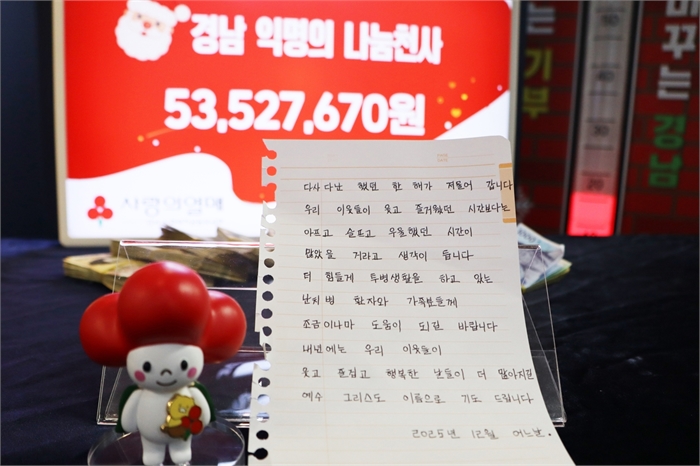 경남 익명의 나눔천사
53,527,670원
사랑의열매
는 기부
바꾸는 경남
50
30
20
다사 다난 했던 한 해가 저물어 갑니다
우리 이웃들이 웃고 즐거웠던 시간보다는
아프고 슬프고 우울했던 시간이
많았을 거라고 생각이 듭니다
더 힘들게 투병생활을 하고 있는
난치병 환자와 가족분들께
조금이나마 도움이 되길 바랍니다
내년에는 우리 이웃들이
웃고 즐겁고 행복한 날들이 더 많아지길
예수 그리스도 이름으로 기도 드립니다
2025년 12월 어느날.